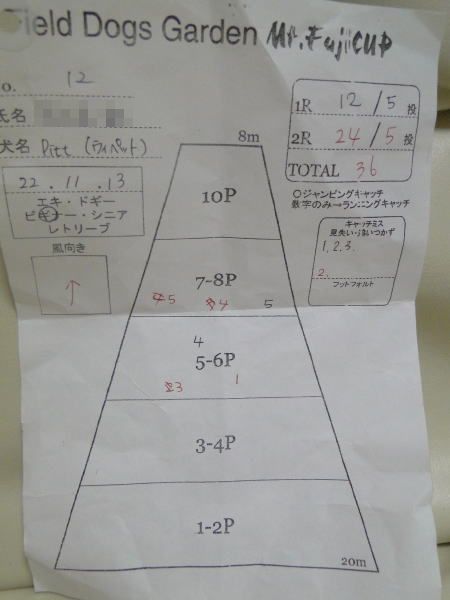 Field Dogs Garden Mt.FujiCUP
No. 12
氏名
犬名 Pitt (ウィペット)
22.11.13
エキ・ドギー
ビギナー・シニア
レトリーブ
風向き
↑
1R 12/5投
2R 24/5投
TOTAL 36
○ジャンピングキャッチ
数字のみ→ランニングキャッチ
キャッチミス
見失い・追いつかず
1,2,3.
2.
フットフォルト
8m
10P
7-8P
5 4 5
4
5-6P
3 1
3-4P
1-2P
20m